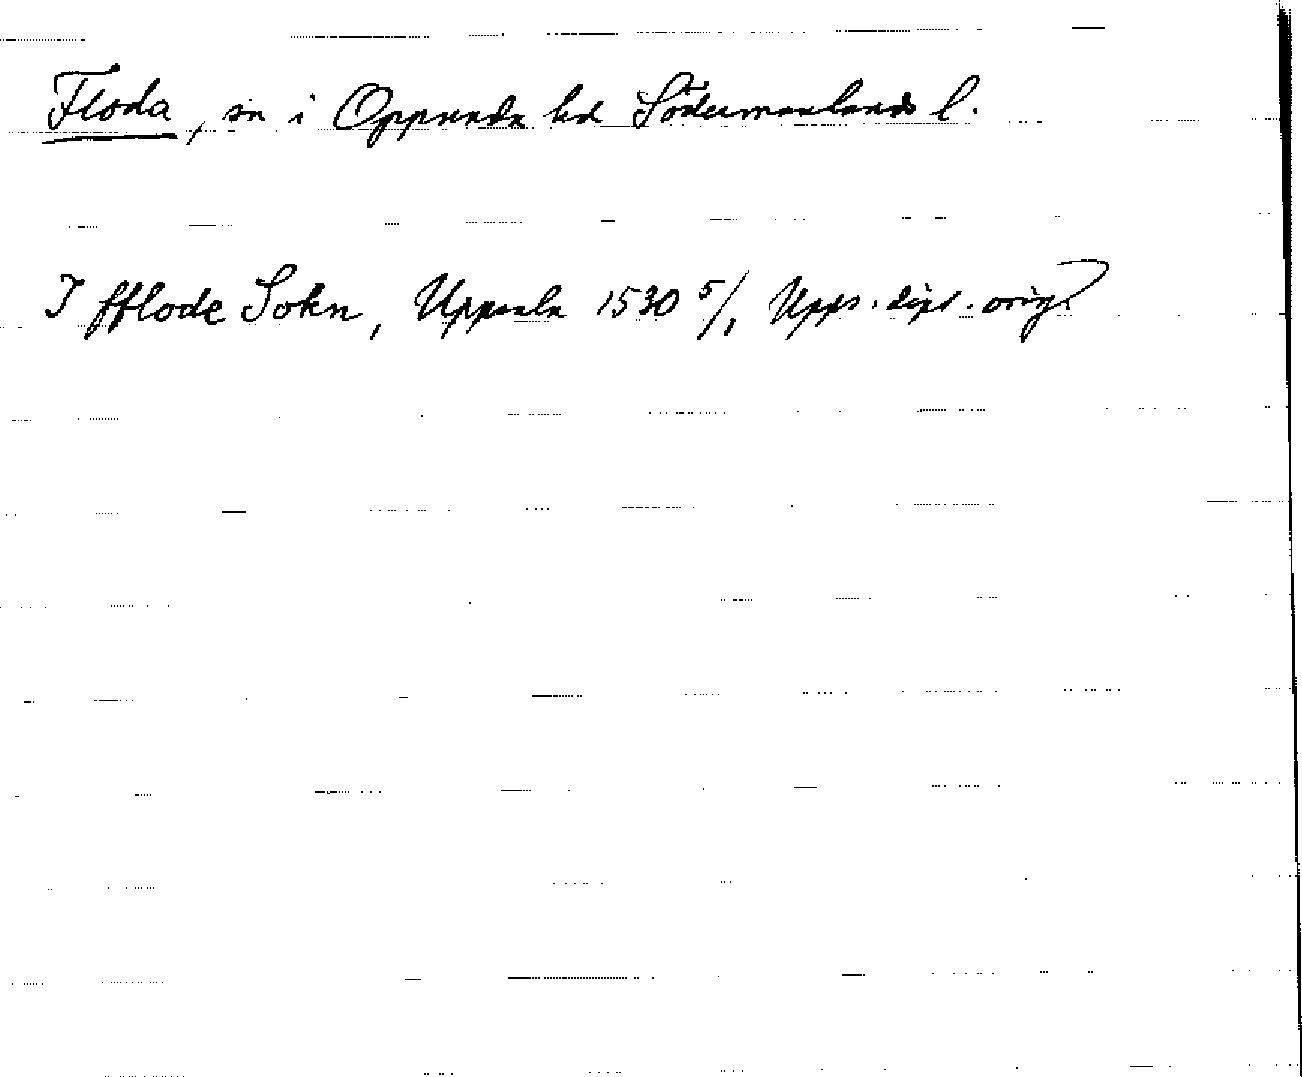 Floda, sn i Oppunda hd Södermanlands l.
I fflode Sokn, Uppsala 1530 5/1 Upps. dipl. orig.